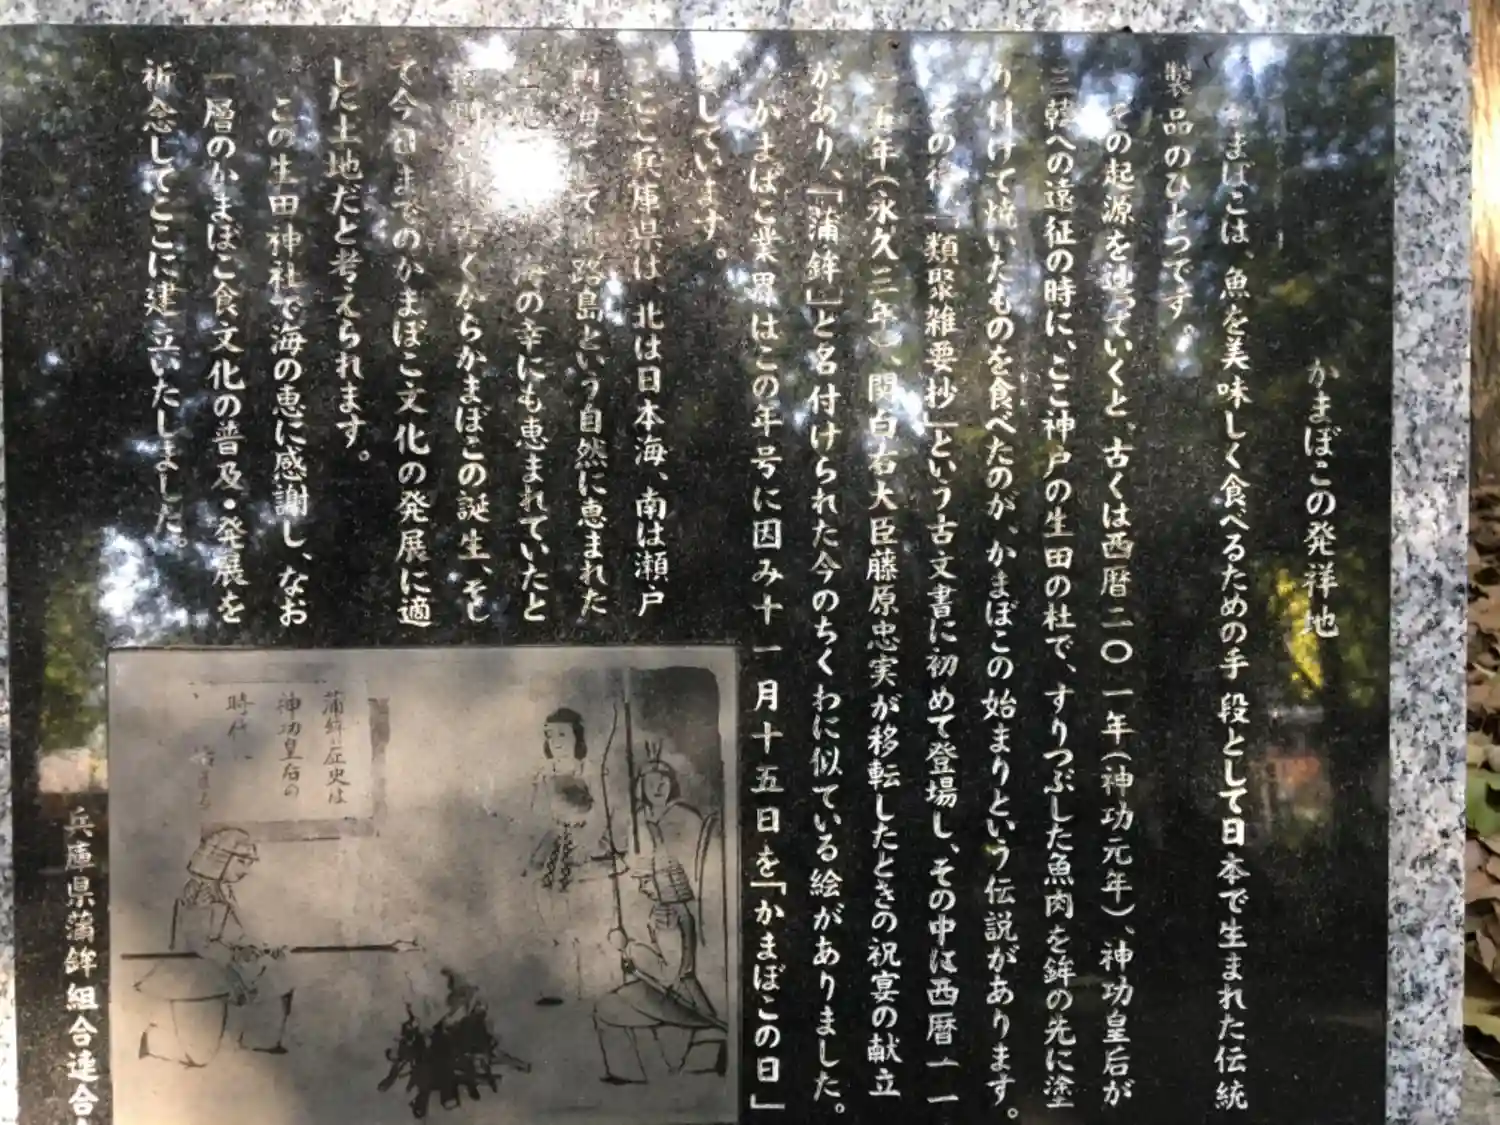 かまぼこの発祥地
まぼこは、魚を美味しく食べるための手段として日本で生まれた伝統
製品のひとつです。
その起源を辿っていくと、古くは西暦二〇一年(神功元年)、神功皇后が
三韓への遠征の時に、ここ神戸の生田の杜で、すりつぶした魚肉を鉾の先に塗
り付けて焼いたものを食べたのが、かまぼこの始まりという伝説があります。
その後、「類聚雑要抄」という古文書に初めて登場し、その中は西暦一一
一五年(永久三年)、関白右大臣藤原忠実が移転したときの祝宴の献立
があり、「蒲鉾」と名付けられた今のちくわに似ている絵がありました。
かまぼこ業界はこの年号に因み十一月十五日を「かまぼこの日」
としています。
ここ兵庫県は、北は日本海、南は瀬戸
内海そして淡路島という自然に恵まれた
の幸にも恵まれていたと
くからかまぼこの誕生、そし
て今日までのかまぼこ文化の発展に適
した土地だと考えられます。
この生田神社で海の恵に感謝し、なお
一層のかまぼこ食文化の普及・発展を
祈念してここに建立いたしました。
兵庫県蒲鉾組合連合
蒲鉾の歴史は
神功皇后の
時代